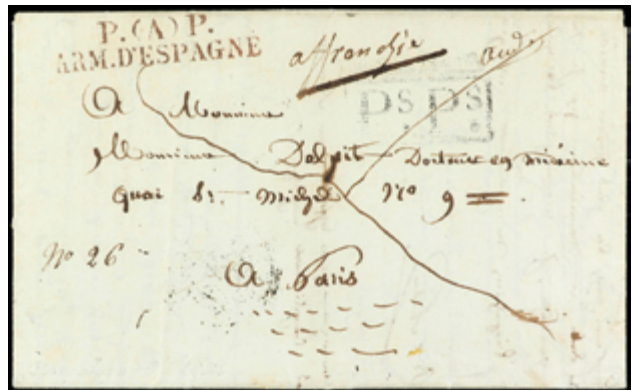 P. (A) P.
ARM. D'ESPAGNE
affranchie
DS. DS.
A Monsieur
Monsieur Dalpit Docteur en médecine
Quai St. Michel No 9
No 26
A Paris